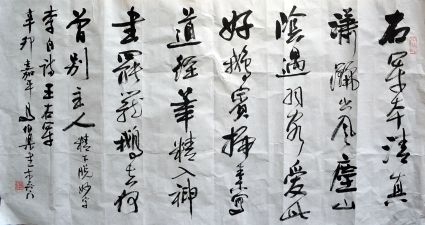 右軍本清真
瀟灑出風塵山
陰過羽客愛此
好鵝賓掃素寫
道經筆精入神
書罷籠鵝去何
曾別主人 精下脱妙字
李白詩王右軍
辛卯嘉平